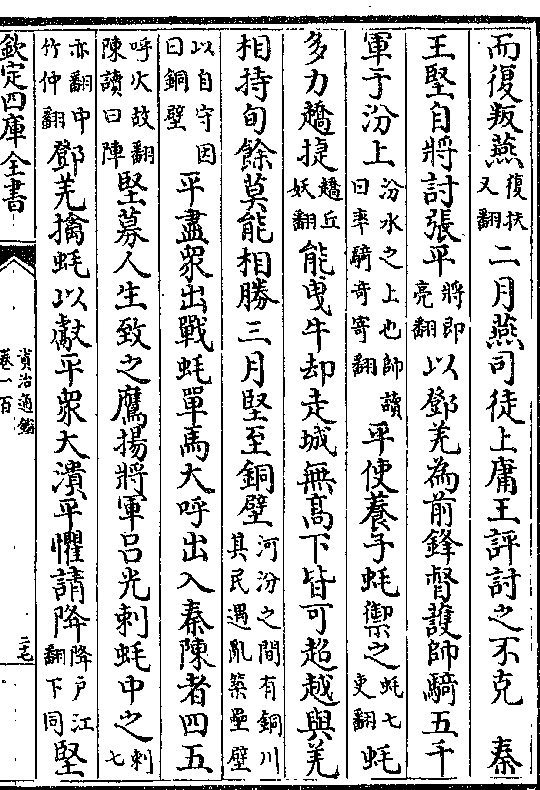 而復叛燕復扶又翻二月燕司徒上庸王評討之不克　秦
王堅自將討張平將即亮翻以鄧羌為前鋒督護帥騎五千
軍于汾上汾水之上也帥讀曰率騎奇寄翻平使養子蚝禦之蚝七吏翻蚝
多力趫捷趫丘妖翻能曳牛却走城無高下皆可超越與羌
相持旬餘莫能相勝三月堅至銅壁河汾之間有銅川其民遇亂築壘壁
以自守因曰銅壁平盡衆出戰蚝單馬大呼出入秦陳者四五
呼火故翻陳讀曰陣堅募人生致之鷹揚將軍呂光刺蚝中之刺七
亦翻中竹仲翻鄧羌擒蚝以獻平衆大潰平懼請降降户江翻下同堅
欽定四庫全書
資治通鑑
卷一百
二七